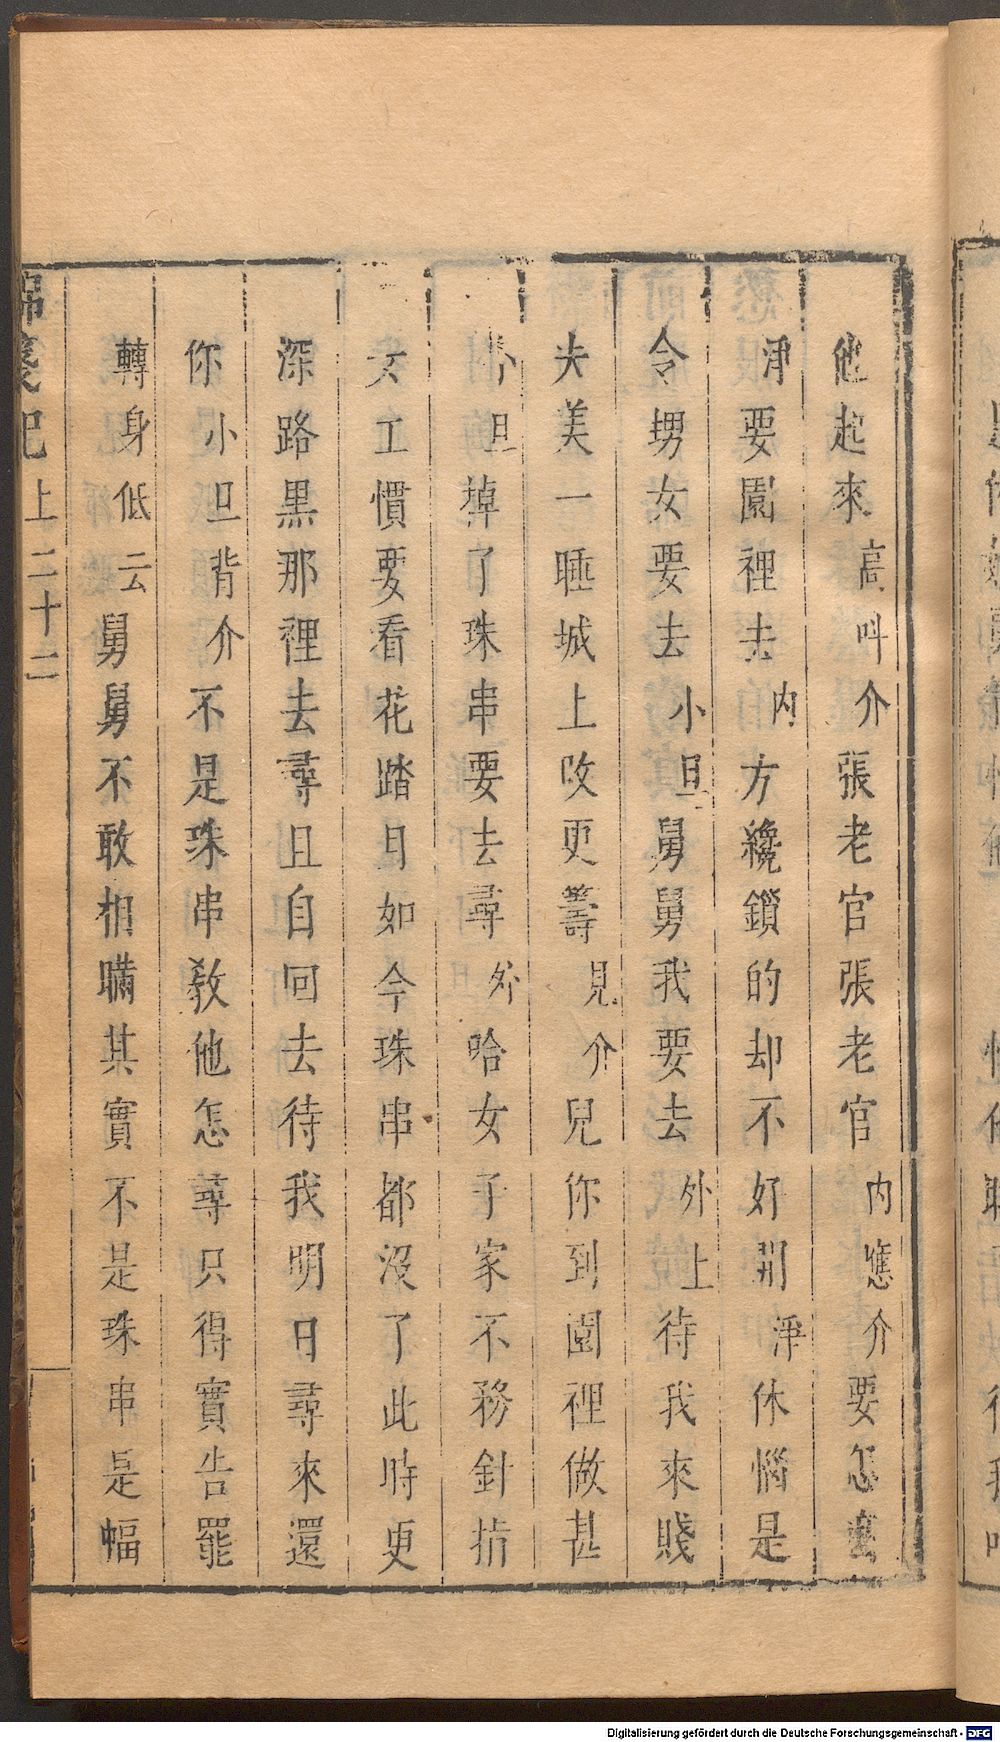 他起來高叫介張老官張老官內應介要怎麼
淨要園裡去內方纔鎖的却不好開淨休惱是
令甥女要去小旦舅舅我要去外上待我來賤
夫美一睡城上攺更籌見介兒你到園裡做甚
小旦掉了珠串要去尋外哈女子家不務針指
女工慣要看花踏月如今珠串都沒了此時更
深路黒那裡去尋且自回去待我明日尋來還
你小旦背介不是珠串教他怎尋只得實告罷
轉身低云舅舅不敢相瞞其實不是珠串是幅
錦箋記上二十二
Digitalisierung gefördert durch die Deutsche Forschungsgemeinschaft - DFG